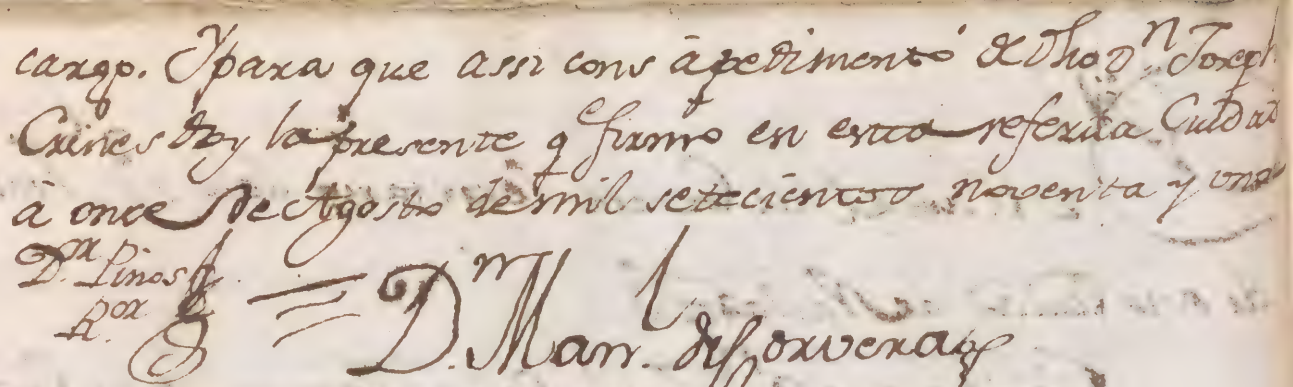 cargo. Y para que assi cons â pedimento de dho Dn. Joseph
Crines doy la presente qe firmo en esta referida Ciudad
â once de Agosto de mil setecientos noventa y uno
Dor. Pinos
Ror. = Dn. Manl. de Corvera